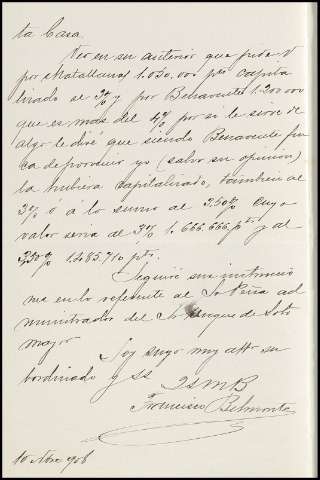 ta Casa.
Veo en su anterior que pide V
por Matallana 1.050.000 pts capita
lizado al 3% y por Benavente 1.200.000
que es mas del 4% por si le sirve de
algo le diré que siendo Benavente fin
ca de porvenir yo (salvo su opinión)
la hubiera capitalizado, tambien al
3% ó á lo sumo al 3.50% cuyo
valor seria al 3% 1.666.666 pts y al
3,50% 1.485.710 pts.
Seguiré sus instruccio
nes en lo referente al Sr Peña ad
ministrador del Sr Duque de Soto
mayor
Soy suyo muy atto su
bordinado y SS
QSMB
Francisco Belmonte
10 Nbre 906